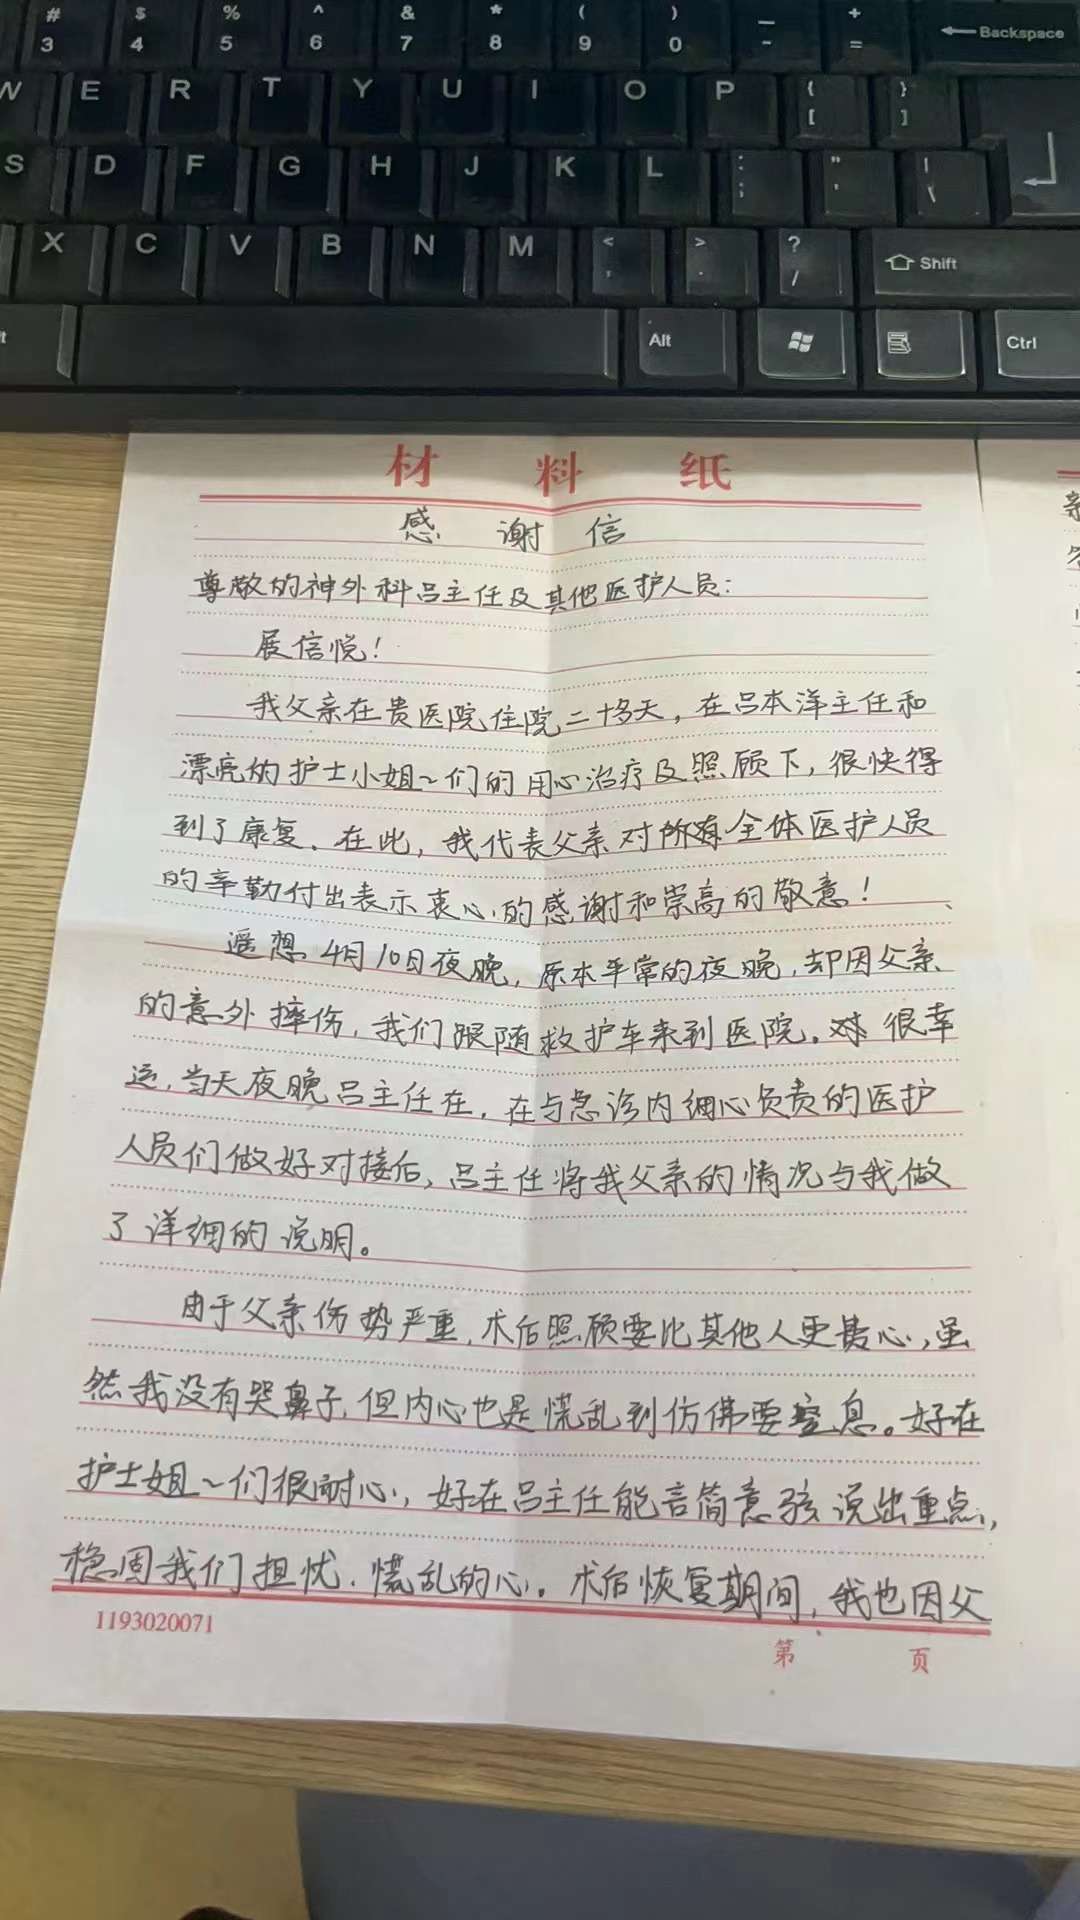 # $ % ^ & * ( ) — +
3 4 5 6 7 8 9 0 - = Backspace
W E R T Y U I O P { [ } ]
S D F G H J K L : ; " ' | \
X C V B N M < , > . ? / Shift
Alt Ctrl
材料纸
感谢信
尊敬的神外科吕主任及其他医护人员：
展信悦！
我父亲在贵医院住院二十多天，在吕本洋主任和
漂亮的护士小姐~们的用心治疗及照顾下，很快得
到了康复。在此，我代表父亲对所有全体医护人员
的辛勤付出表示衷心的感谢和崇高的敬意！
遥想4月10日夜晚，原本平常的夜晚，却因父亲
的意外摔伤，我们跟随救护车来到医院。很幸
运，当天夜晚吕主任在，在与急诊内细心负责的医护
人员们做好对接后，吕主任将我父亲的情况与我做
了详细的说明。
由于父亲伤势严重，术后照顾要比其他人更费心，虽
然我没有哭鼻子，但内心也是慌乱到仿佛要窒息。好在
护士姐~们很耐心，好在吕主任能言简意孩说出重点，
稳固我们担忧、慌乱的心。术后恢复期间，我也因父
1193020071
第 页